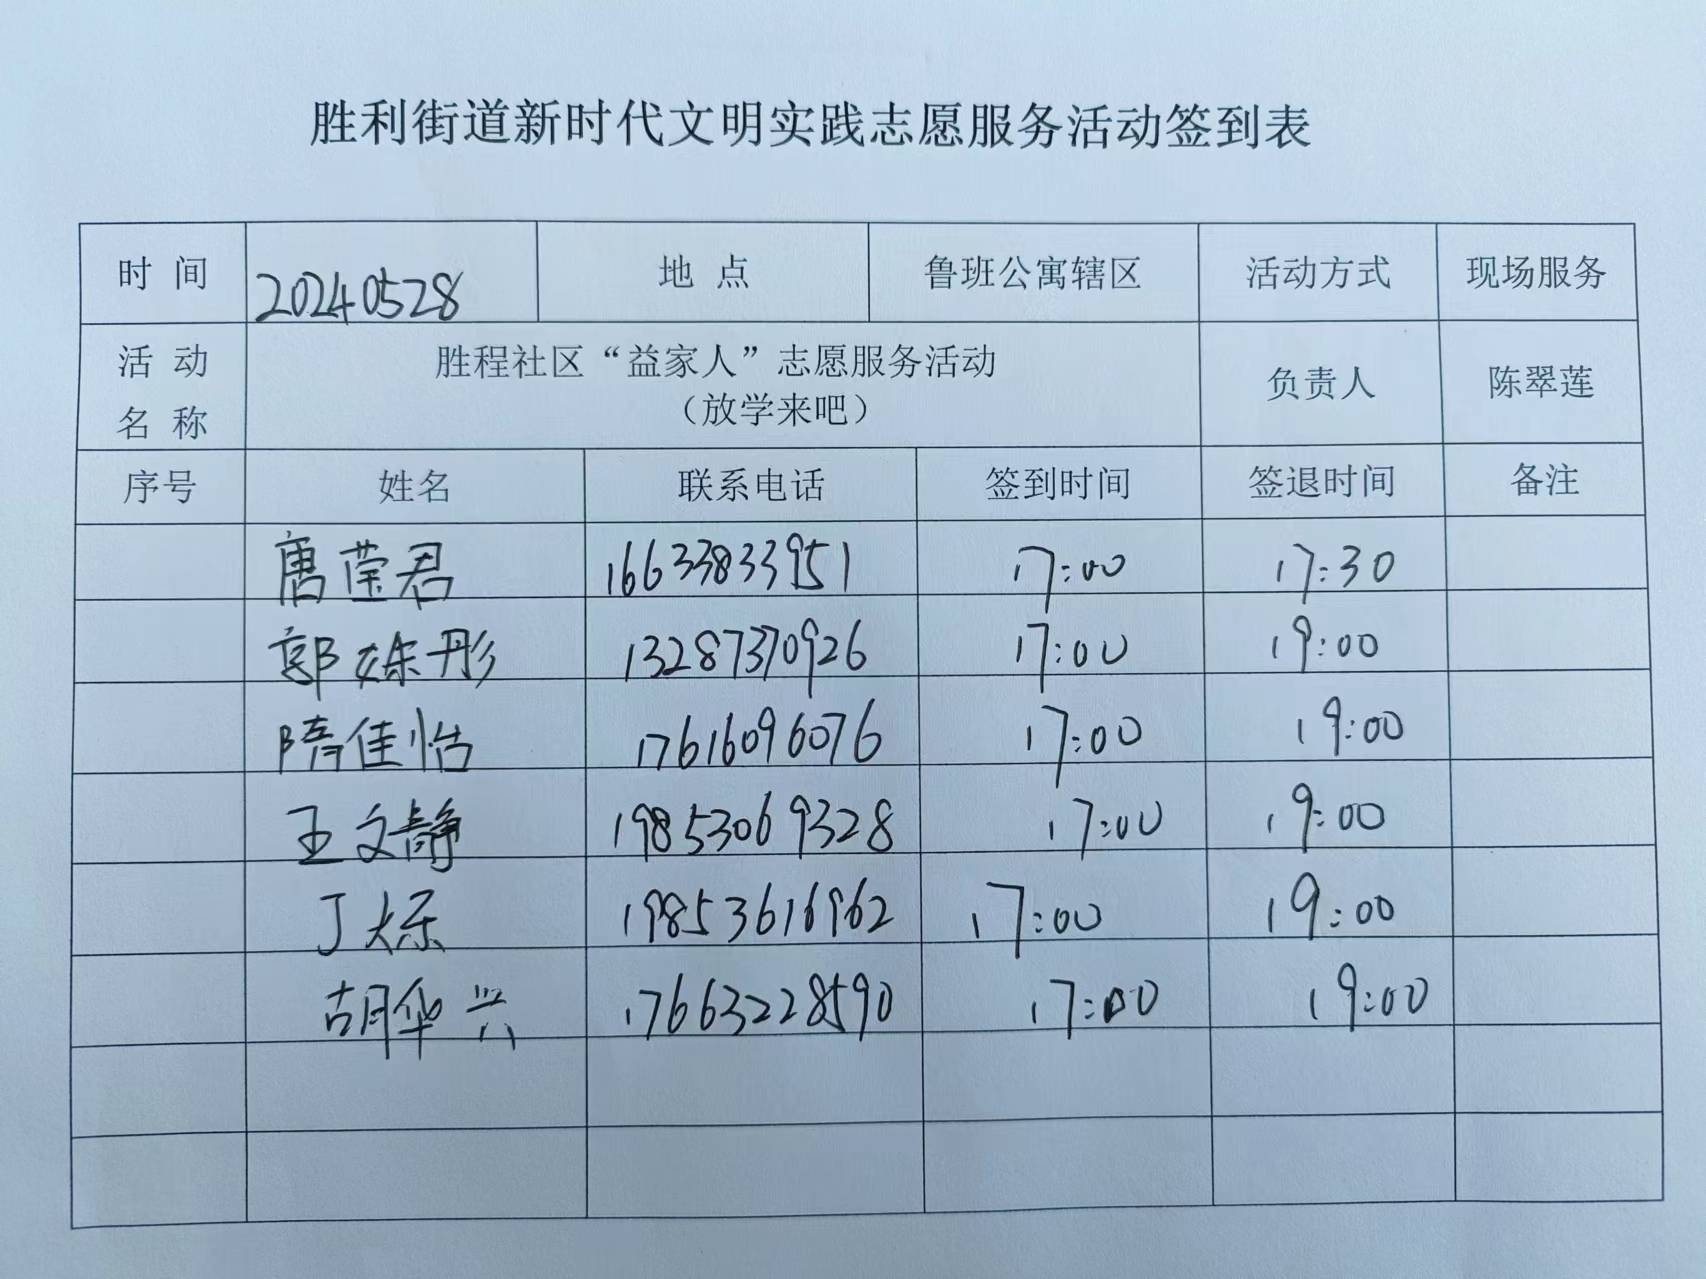 胜利街道新时代文明实践志愿服务活动签到表
时 间 20240528 地 点 鲁班公寓辖区 活动方式 现场服务
活 动 名 称 胜程社区“益家人”志愿服务活动 负责人 陈翠莲
（放学来吧）
序号 姓名 联系电话 签到时间 签退时间 备注
唐莹君 16633833951 17:00 17:30
郭姝彤 13287370926 17:00 19:00
隋佳怡 17616096076 17:00 19:00
王文静 19853069328 17:00 19:00
丁 19853616962 17:00 19:00
胡华兴 17663228590 17:00 19:00